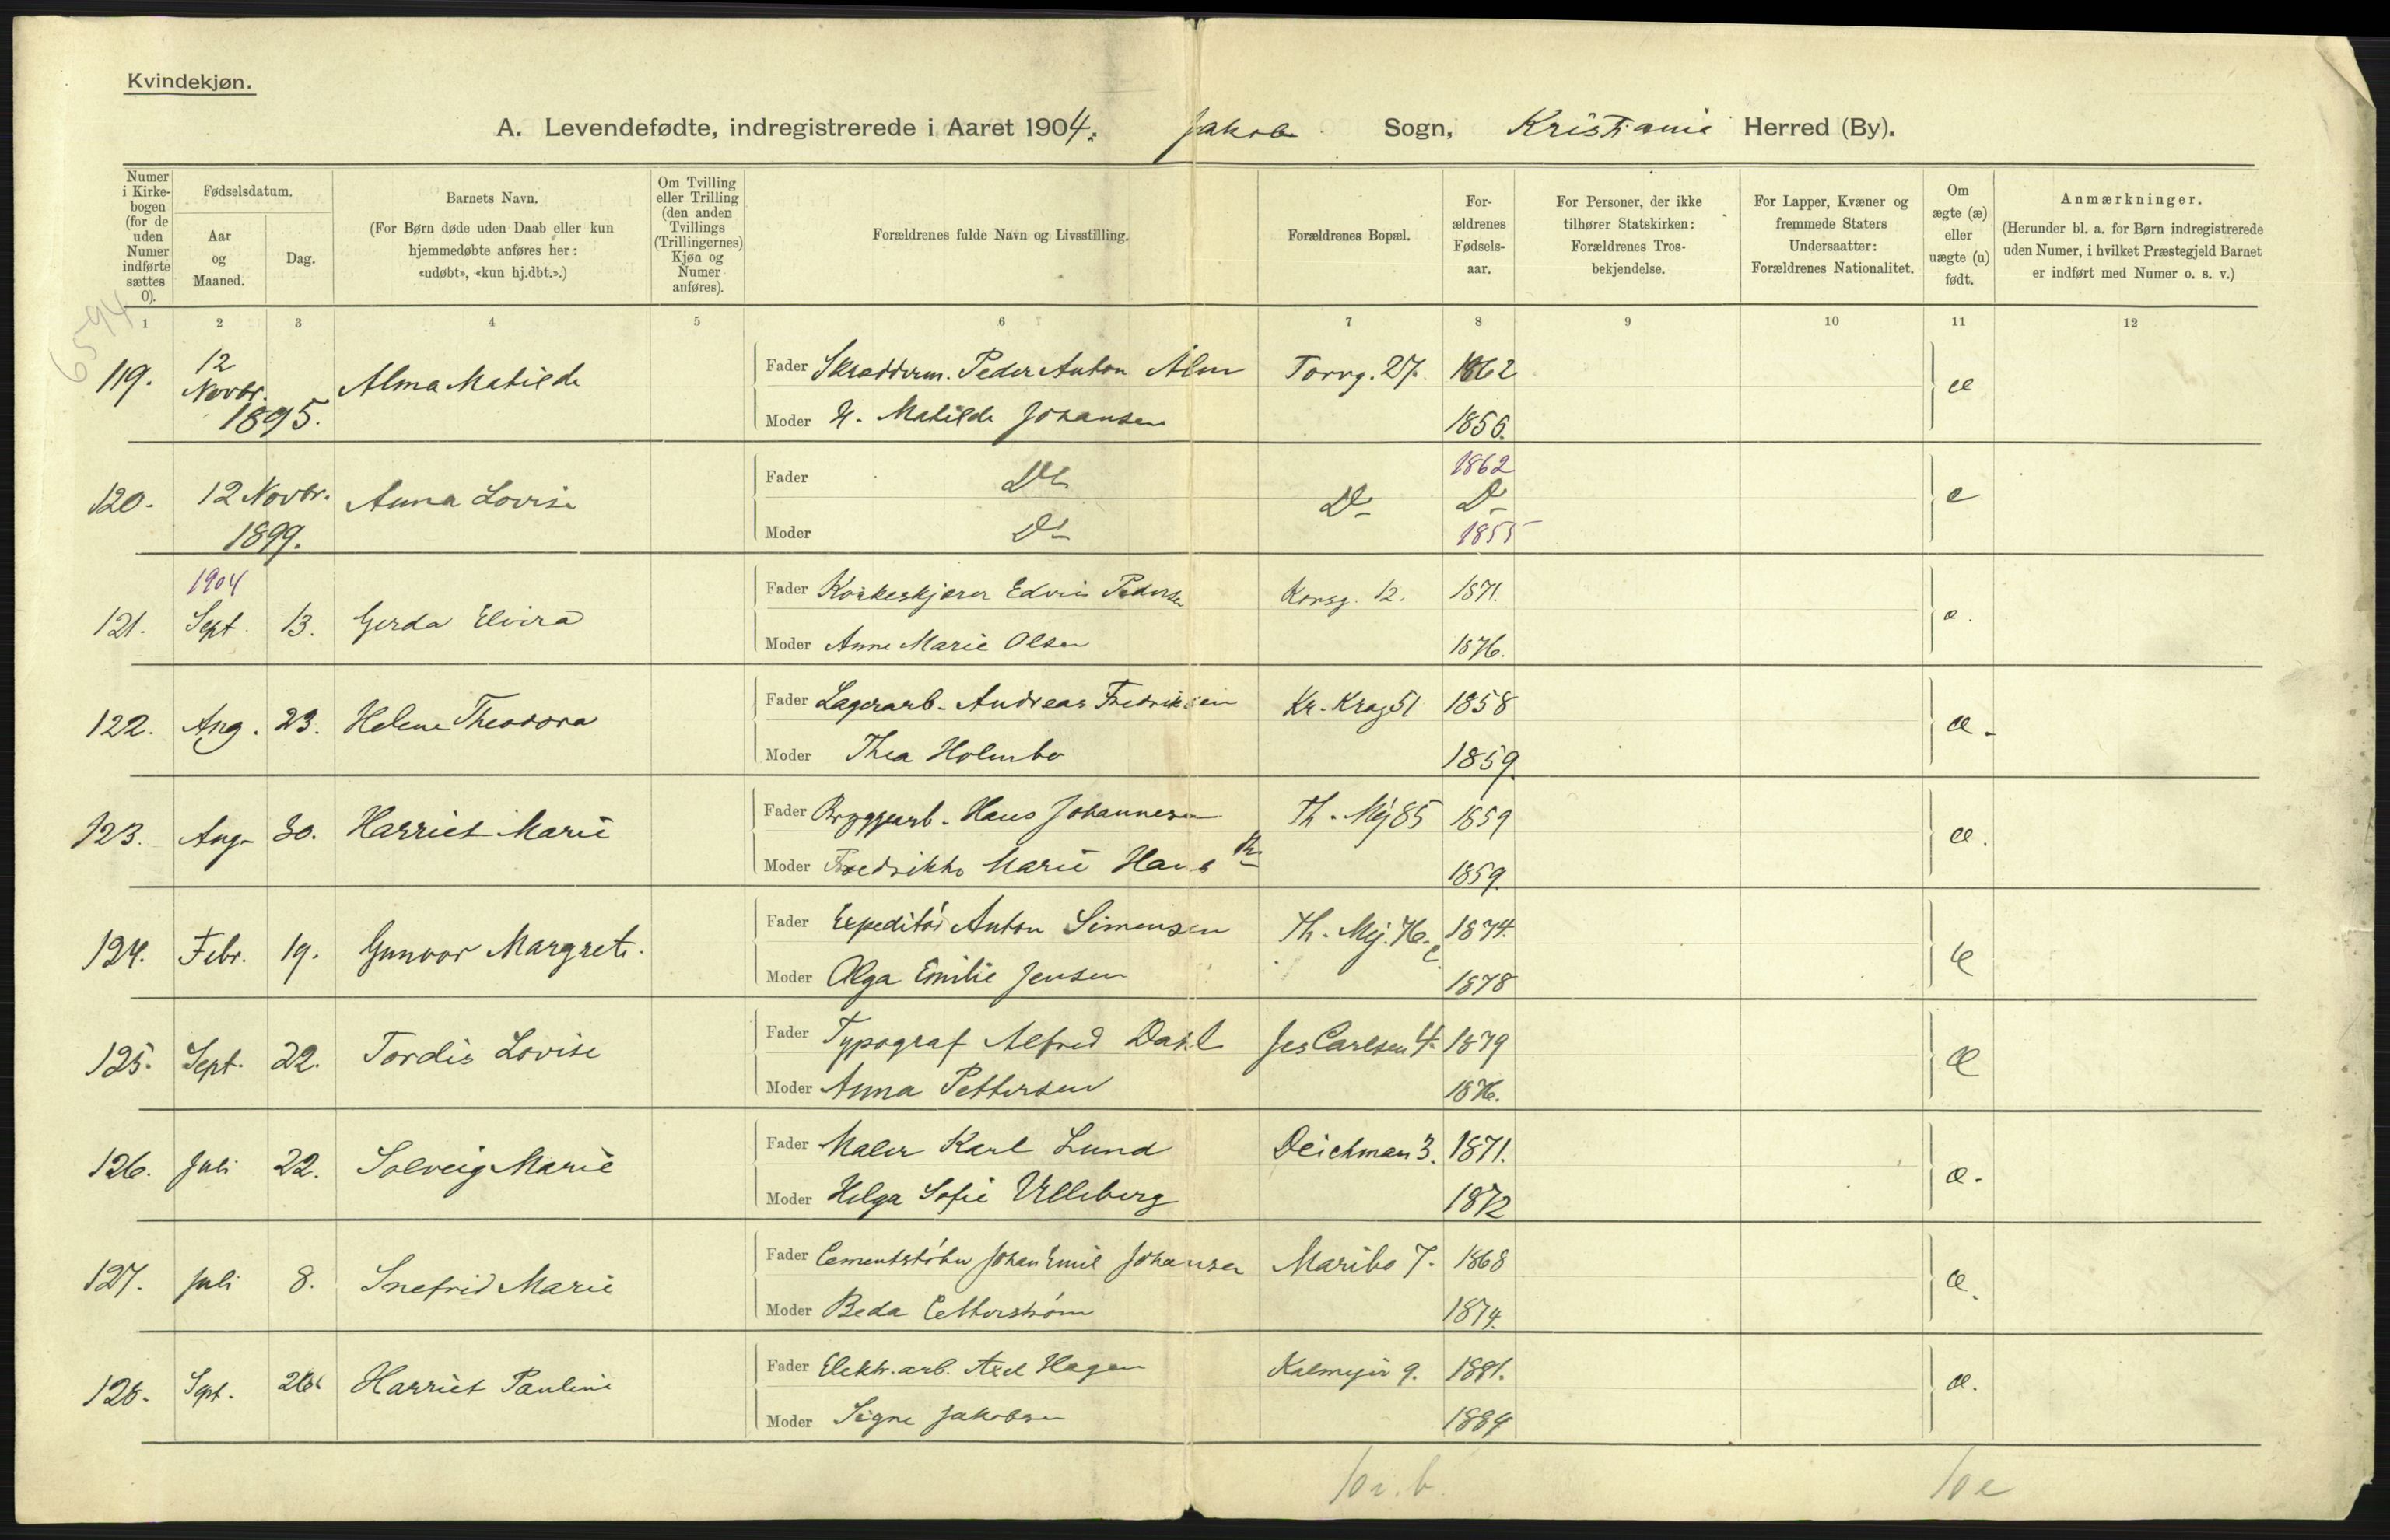 Kvindekjøn.
A. Levendefødte, indregistrerede i Aaret 1904. Jakob Sogn, Kristiania Herred (By).
Numer i Kirkebogen (for de uden Numer indførte sættes 0).
Fødselsdatum.
Aar og Maaned.
Dag.
Barnets Navn.
(For Børn døde uden Daab eller kun hjemmedøbte anføres her: «udøbt», «kun hj.dbt.».)
Om Tvilling eller Trilling (den anden Tvillings (Trillingernes) Kjøn og Numer anføres).
Forældrenes fulde Navn og Livsstilling.
Forældrenes Bopæl.
Forældrenes Fødselsaar.
For Personer, der ikke tilhører Statskirken: Forældrenes Trosbekjendelse.
For Lapper, Kvæner og fremmede Staters Undersaatter: Forældrenes Nationalitet.
Om ægte (æ) eller uægte (u) født.
Anmærkninger.
(Herunder bl. a. for Børn indregistrerede uden Numer, i hvilket Præstegjeld Barnet er indført med Numer o. s. v.)
1 2 3 4 5 6 7 8 9 10 11 12
6594
119. 12 Novbr. 1895. Alma Matilde Fader Skrædderm. Peder Anton Alm Torvg. 27. 1862 æ
Moder H. Matilde Johansen 1855.
1862
120. 12 Novbr. 1899. Anna Lovise Fader Do Do D æ
Moder Do 1855
1904
121. Sept. 13. Gerda Elvira Fader Korkeskjærer Edvin Pedersen Korsg. 12. 1871. æ.
Moder Anne Marie Olsen 1876.
122. Aug. 23. Helene Theodora Fader Lagerarb. Andreas Fredriksen Kr. Krag 51 1858 æ.
Moder Thea Holmbo 1859.
123. Aug. 30. Harriet Marie Fader Bryggearb. Hans Johannesen Th. Mej 85 1859 æ.
Moder Fredrikke Marie Hans 1859.
124. Febr. 19. Gunvor Margrete. Fader Expeditør Anton Simensen Th. Mej. 76. c 1874. æ
Moder Olga Emilie Jensen 1878
125. Sept. 22. Tordis Lovise Fader Typograf Alfred Dahl Jes Carlsen 4. 1879 æ
Moder Anna Pettersen 1876.
126. Juli 22. Solveig Marie Fader Maler Karl Lund Deichman 3. 1871. æ.
Moder Helga Sofie Ulleberg 1872
127. Juli 8. Snefrid Marie Fader Cementstøber Johan Emil Johansen Maribo 7. 1868 æ.
Moder Beda Cetterstrøm 1874.
128. Sept. 26. Harriet Pauline Fader Elektr. arb. Axel Hagen Kalmejer 9. 1881. æ.
Moder Signe Jakobsen 1884
10 i. b. 10 e